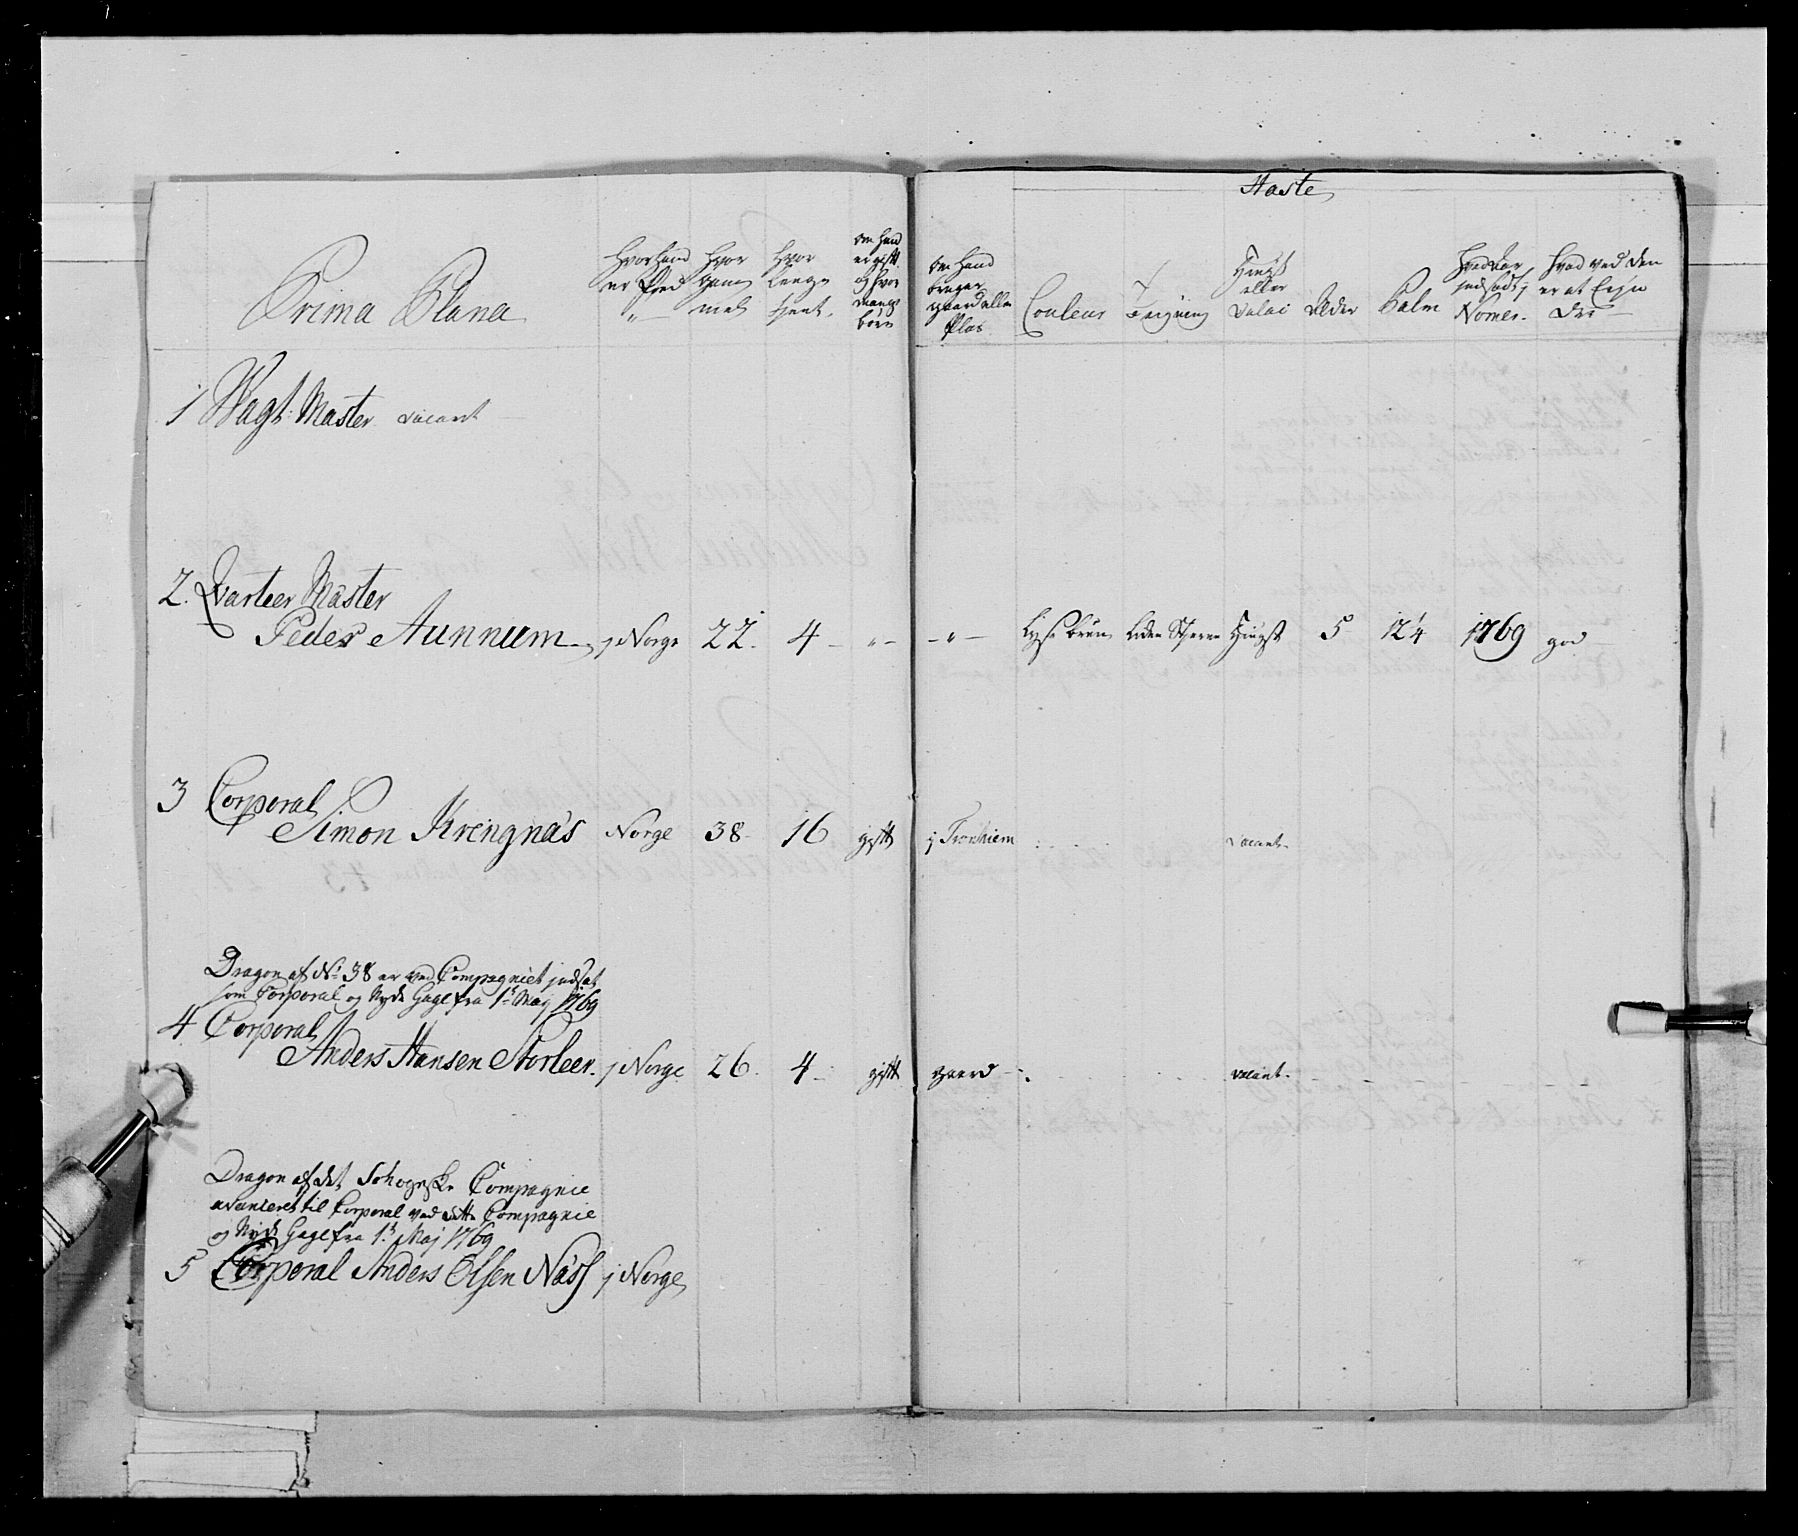 Haste
Prima Plana
Hvor hand er fød
Hvor gam̄el
Hvor lenge tient
om hand er gift og hvor mange børn
om hand bruger gaard eller Plas
Couleur
Teigning
Hingst eller Valac
Alder
Palm
Nomer
hvad ved den er at Erindre
1 Wagt: Master vacant
2. Qvarteer Master
Peder Aunnum j Norge 22. 4 — „ — — „ — Lyse brun Liden Stierne Hingst 5 12¼ 1769 god
3 Corporal
Simon Krengnäs Norge 38 16 gift j Tronhiem vacant
Dragon af No 38 er ved Compagniet jndsat
som Corporal og Nyde Gage fra 1t Maj 1769
4 Corporal
Anders Hansen Storleer. j Norge 26. 4 gift gaard vacant
Dragon af det Compagnie
avanceret til Corporal ved dette Compagnie
og Nyde Gage fra 1t Maj 1769
5 Corporal Anders Olsen Näss j Norge